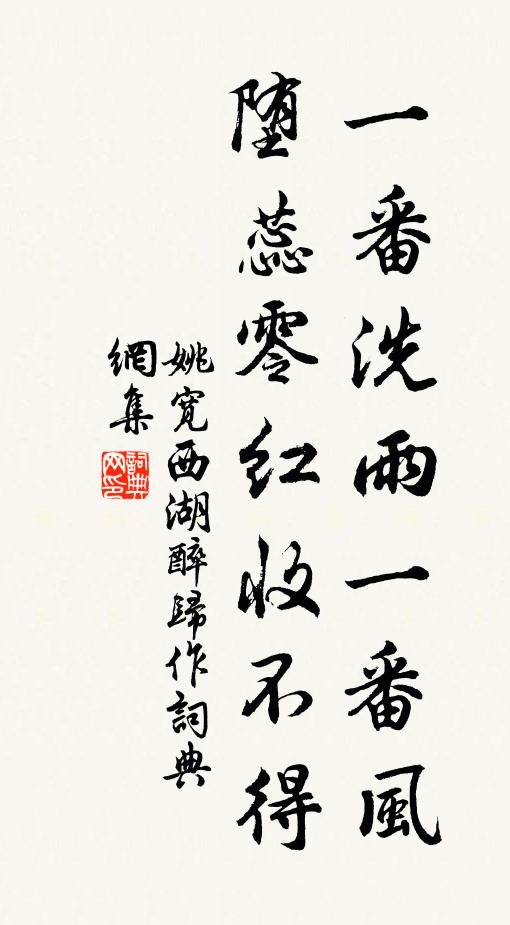 一番洗雨一番風
堕蕊零红收不得
姚寬西湖醉歸作詞典
網集
詞典
网印